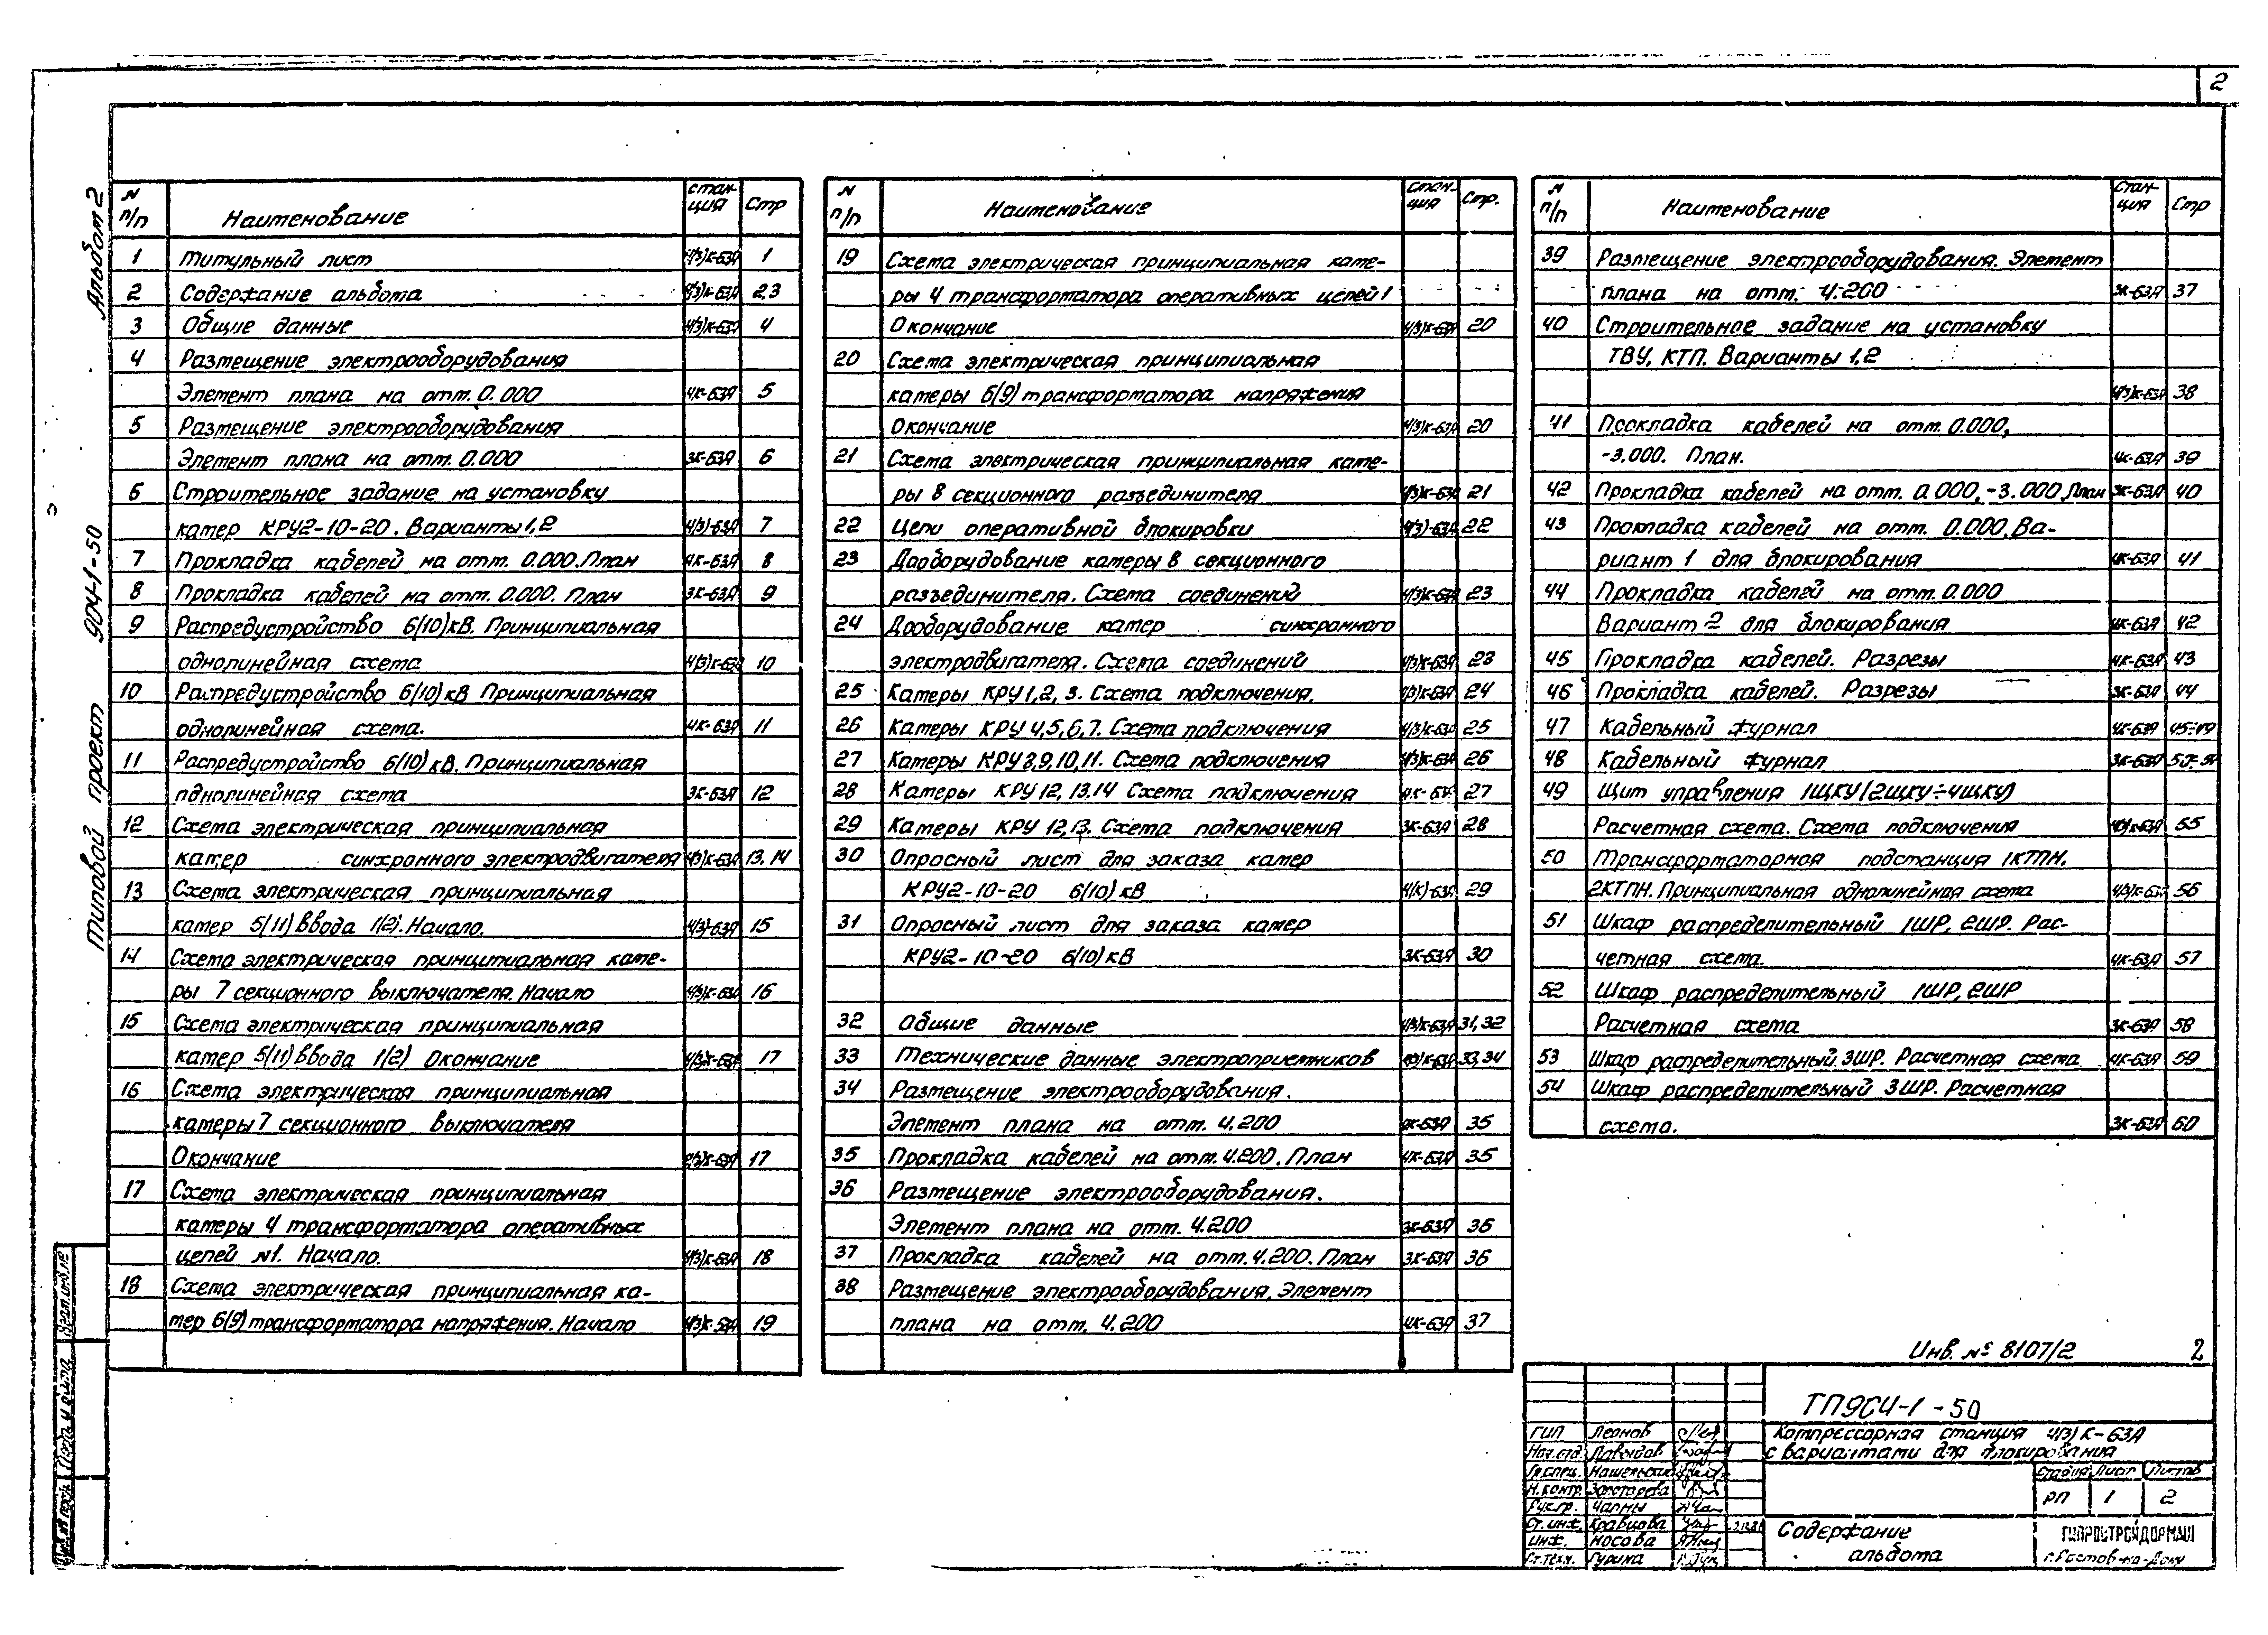 2
Альбом 2
Типовой проект 904-1-50
N п/п Наименование Станция Стр
1 Титульный лист 4(3)К-63А 1
2 Содержание альбома 4(3)К-63А 2,3
3 Общие данные 4(3)К-63А 4
4 Размещение электрооборудования
Элемент плана на отм. 0.000 4К-63А 5
5 Размещение электрооборудования
Элемент плана на отм. 0.000 3К-63А 6
6 Строительное задание на установку
камер КРУ2-10-20. Варианты 1,2 4(3)-63А 7
7 Прокладка кабелей на отм. 0.000. План 4К-63А 8
8 Прокладка кабелей на отм. 0.000. План 3К-63А 9
9 Распредустройство 6(10)кВ. Принципиальная
однолинейная схема 4(3)К-63А 10
10 Распредустройство 6(10)кВ Принципиальная
однолинейная схема. 4К-63А 11
11 Распредустройство 6(10)кВ. Принципиальная
однолинейная схема 3К-63А 12
12 Схема электрическая принципиальная
камер синхронного электродвигателя 4(3)К-63А 13,14
13 Схема электрическая принципиальная
камер 5(11) ввода 1(2). Начало. 4(3)-63А 15
14 Схема электрическая принципиальная каме-
ры 7 секционного выключателя. Начало 4(3)К-63А 16
15 Схема электрическая принципиальная
камер 5(11) ввода 1(2) Окончание 4(3)К-63А 17
16 Схема электрическая принципиальная
камеры 7 секционного выключателя
Окончание 4(3)К-63А 17
17 Схема электрическая принципиальная
камеры 4 трансформатора оперативных
цепей N1. Начало. 4(3)К-63А 18
18 Схема электрическая принципиальная ка-
мер 6(9) трансформатора напряжения. Начало 4(3)К-63А 19
N п/п Наименование Станция Стр.
19 Схема электрическая принципиальная каме-
ры 4 трансформатора оперативных цепей 1
Окончание 4(3)К-63А 20
20 Схема электрическая принципиальная
камеры 6(9) трансформатора напряжения
Окончание 4(3)К-63А 20
21 Схема электрическая принципиальная каме-
ры 8 секционного разъединителя 4(3)К-63А 21
22 Цепи оперативной блокировки 4(3)-63А 22
23 Дооборудование камеры 8 секционного
разъединителя. Схема соединений 4(3)К-63А 23
24 Дооборудование камер синхронного
электродвигателя. Схема соединений 4(3)К-63А 23
25 Камеры КРУ 1, 2, 3. Схема подключения. 4(3)К-63А 24
26 Камеры КРУ 4,5,6,7. Схема подключения 4(3)К-63А 25
27 Камеры КРУ 8,9,10,11. Схема подключения 4(3)К-63А 26
28 Камеры КРУ 12, 13,14 Схема подключения 27
29 Камеры КРУ 12,13. Схема подключения 3К-63А 28
30 Опросный лист для заказа камер
КРУ2-10-20 6(10)кВ 4(К)-63А 29
31 Опросный лист для заказа камер
КРУ2-10-20 6(10)кВ 3К-63А 30
32 Общие данные 4(3)К-63А 31,32
33 Технические данные электроприемников 4(3)К-63А 33,34
34 Размещение электрооборудования.
Элемент плана на отм. 4.200 4К-63А 35
35 Прокладка кабелей на отм. 4.200. План 4К-63А 35
36 Размещение электрооборудования.
Элемент плана на отм. 4.200 3К-63А 36
37 Прокладка кабелей на отм. 4.200. План 3К-63А 36
38 Размещение электрооборудования. Элемент
плана на отм. 4.200 4К-63А 37
N п/п Наименование Станция Стр
39 Размещение электрооборудования. Элемент
плана на отм. 4.200 3К-63А 37
40 Строительное задание на установку
ТВУ, КТП. Варианты 1,2
4(3)К-63А 38
41 Прокладка кабелей на отм. 0.000,
-3.000. План. 4К-63А 39
42 Прокладка кабелей на отм. 0.000, -3.000. План 3К-63А 40
43 Прокладка кабелей на отм. 0.000. Ва-
риант 1 для блокирования 4К-63А 41
44 Прокладка кабелей на отм. 0.000
Вариант 2 для блокирования 4К-63А 42
45 Прокладка кабелей. Разрезы 4К-63А 43
46 Прокладка кабелей. Разрезы 3К-63А 44
47 Кабельный журнал 4К-63А 45÷49
48 Кабельный журнал 3К-63А 50÷54
49 Щит управления 1ЩКУ (2ЩКУ÷4ЩКУ)
Расчетная схема. Схема подключения 4(3)К-63А 55
50 Трансформаторная подстанция 1КТПН,
2КТПН. Принципиальная однолинейная схема 4(3)К-63А 56
51 Шкаф распределительный 1ШР, 2ШР. Рас-
четная схема. 4К-63А 57
52 Шкаф распределительный 1ШР, 2ШР
Расчетная схема 3К-63А 58
53 Шкаф распределительный 3ШР. Расчетная схема 4К-63А 59
54 Шкаф распределительный 3ШР. Расчетная
схема. 3К-63А 60
Инв. № 8107/2 2
ТП904-1-50
ГИП Леонов
Компрессорная станция 4(3)К-63А
Нач.отд. Давыдов
с вариантами для блокирования
Гл.спец.
Стадия Лист Листов
Н.контр. Захарова
РП 1 2
Рук.гр. Чалмы
Ст.инж. Кравцова
Содержание
альбома
ГИПРОСТРОЙДОРМАШ
Инж. Носова
Ст.техн. Гурина
г. Ростов-на-Дону
Взам.инв.№
Подп. и дата
Инв. № подл.